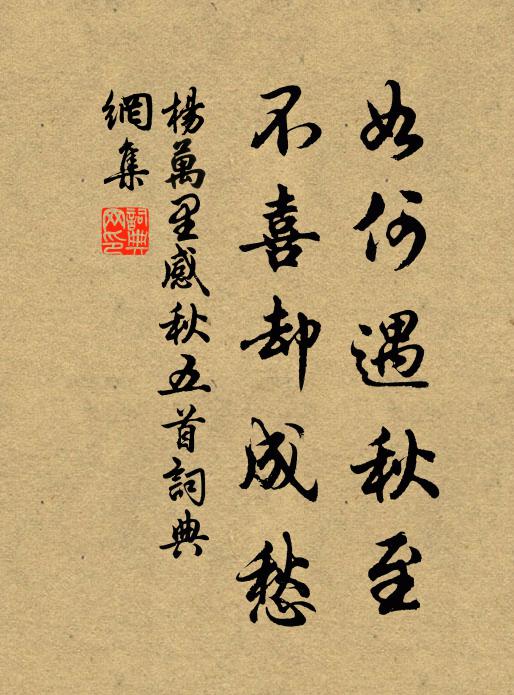 如何遇秋至
不喜却成愁
楊萬里感秋五首詞典
網集
詞典網印